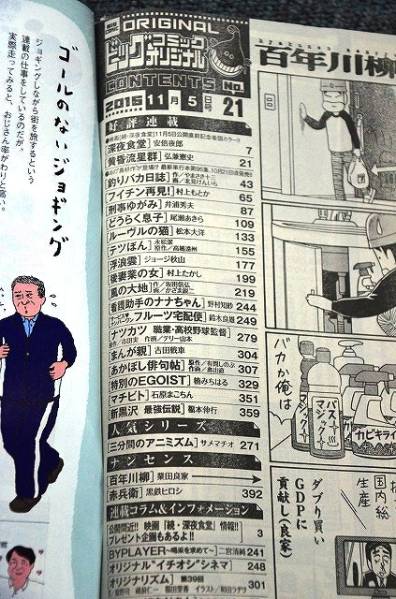 ゴールのないジョギング
ジョギングしながら街を旅するという
連載の仕事をしているのだが、
実際走ってみると、おじさん率がわりと高い。
ORIGINAL
ビッグコミックオリジナル
CONTENTS No.
2015 11月5日号 21
好評連載
[深夜食堂] 安倍夜郎 7
[黄昏流星群] 弘兼憲史 21
[釣りバカ日誌] 作/やまさき十三 画/北見けんいち 43
[フイチン再見!] 村上もとか 65
[刑事ゆがみ] 井浦秀夫 87
[どうらく息子] 尾瀬あきら 109
[ルーヴルの猫] 松本大洋 133
[テツぼん] 永松潔 原作/高橋遠州 155
[浮浪雲] ジョージ秋山 177
[後妻業の女] 村上たかし 199
[風の大地] 作/坂田信弘 画/かざま鋭二 219
[看護助手のナナちゃん] 野村知紗 244
フルーツ宅配便] 鈴木良雄 249
[ナツカツ 職業・高校野球監督] 279
[まんが親] 吉田戦車 304
[あかぼし俳句帖] 原作/有間しのぶ 作画/奥山直 307
[特別のEGOIST] 楠みちはる 329
[マチビト] 石原まこちん 351
[新黒沢 最強伝説] 福本伸行 359
人気シリーズ
[三分間のアニミズム] サメマチオ 271
ナンセンス
[百年川柳] 業田良家
[赤兵衛] 黒鉄ヒロシ 392
連載コラム&インフォメーション
公開間近!! 映画「続・深夜食堂」情報!!
プレゼント企画もあるよ!! 3
BYPLAYER〜喝采を求めて〜] 二宮清純 241
オリジナル"イチオシ"シネマ] 248
オリジナリズム] 第39回 301
百年川柳
バカか俺は
バスマジック
マジック
カビキラー
国内総
生産
ダブり買い
GDPに
貢献し(良家)